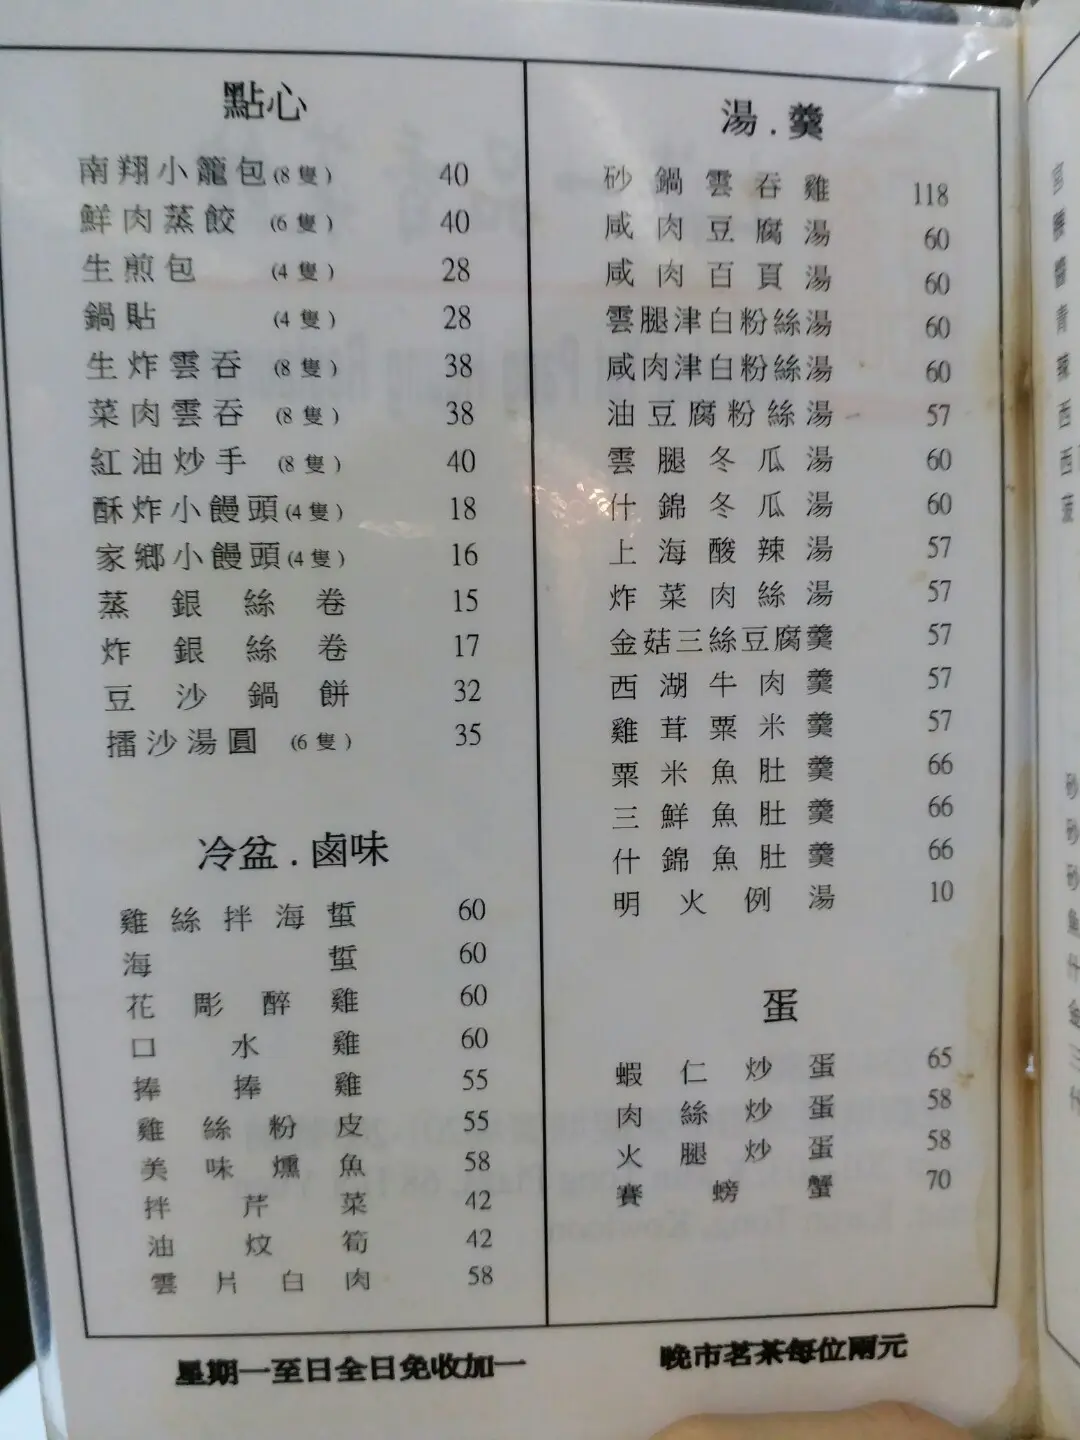 點心
南翔小籠包(8隻) 40
鮮肉蒸餃 (6隻) 40
生煎包 (4隻) 28
鍋貼 (4隻) 28
生炸雲吞 (8隻) 38
菜肉雲吞 (8隻) 38
紅油炒手 (8隻) 40
酥炸小饅頭(4隻) 18
家鄉小饅頭(4隻) 16
蒸銀絲卷 15
炸銀絲卷 17
豆沙鍋餅 32
擂沙湯圓 (6隻) 35
冷盆.鹵味
雞絲拌海蜇 60
海蜇 60
花彫醉雞 60
口水雞 60
捧捧雞 55
雞絲粉皮 55
美味燻魚 58
拌芹菜 42
油炆筍 42
雲片白肉 58
湯.羹
砂鍋雲吞雞 118
咸肉豆腐湯 60
咸肉百頁湯 60
雲腿津白粉絲湯 60
咸肉津白粉絲湯 60
油豆腐粉絲湯 57
雲腿冬瓜湯 60
什錦冬瓜湯 60
上海酸辣湯 57
炸菜肉絲湯 57
金菇三絲豆腐羹 57
西湖牛肉羹 57
雞茸粟米羹 57
粟米魚肚羹 66
三鮮魚肚羹 66
什錦魚肚羹 66
明火例湯 10
蛋
蝦仁炒蛋 65
肉絲炒蛋 58
火腿炒蛋 58
賽螃蟹 70
星期一至日全日免收加一
晚市茗茶每位兩元